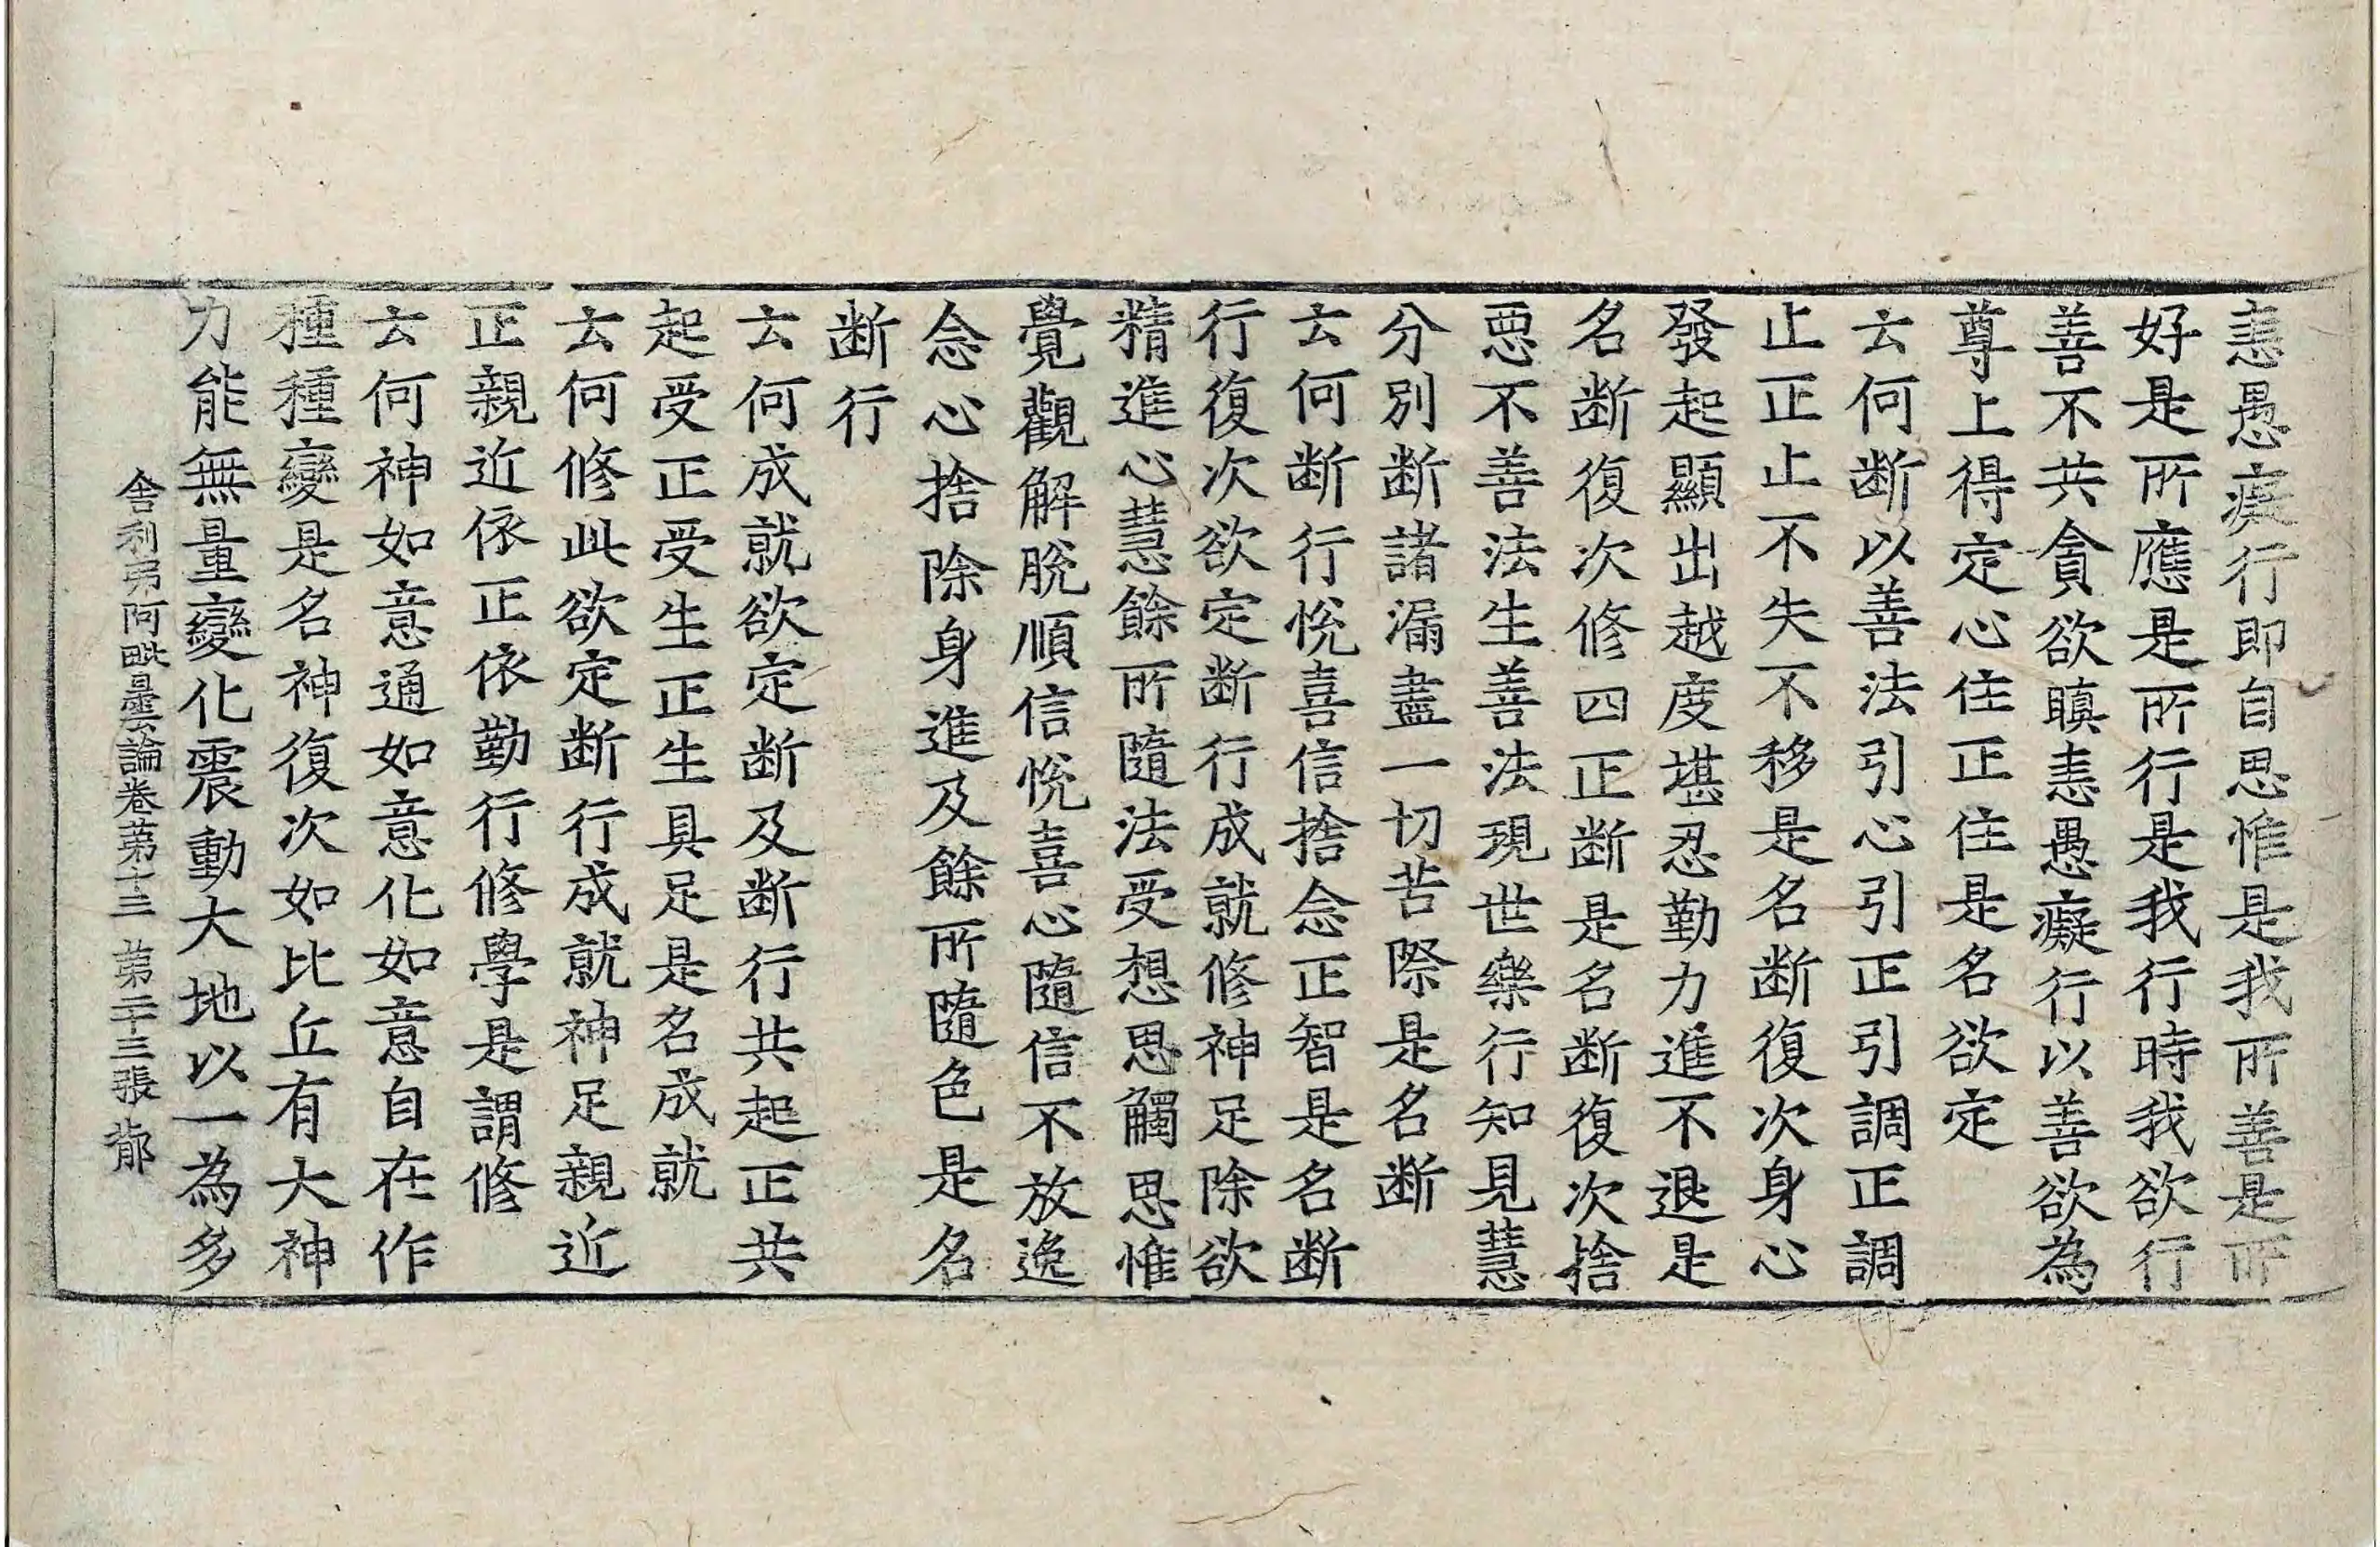 恚愚癡行即自思惟是我所善是所
好是所應是所行是我行時我欲行
善不共貪欲瞋恚愚癡行以善欲為
尊上得定心住正住是名欲定
云何断以善法引心引正引調正調
止正止不失不移是名断復次身心
發起顯出越度堪忍勤力進不退是
名断復次修四正断是名断復次捨
惡不善法生善法現世樂行知見慧
分別断諸漏盡一切苦際是名断
云何断行悅喜信捨念正智是名断
行復次欲定断行成就修神足除欲
精進心慧餘所隨法受想思觸思惟
覺觀解脫順信悅喜心隨信不放逸
念心捨除身進及餘所隨色是名
断行
云何成就欲定断及断行共起正共
起受正受生正生具足是名成就
云何修此欲定断行成就神足親近
正親近依正依勤行修學是謂修
云何神如意通如意化如意自在作
種種變是名神復次如比丘有大神
力能無量變化震動大地以一為多
舍利弗阿毗曇論卷第十三 第二十三張 郁